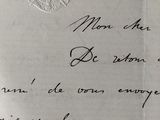 Mon cher
De retour
de vous envoye